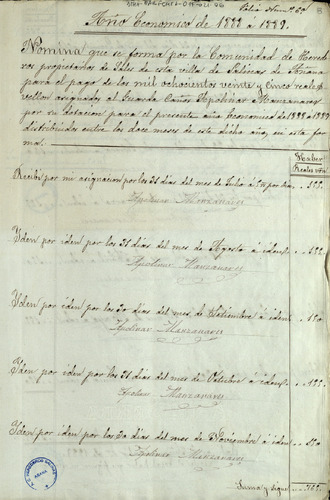 Año Economico de 1888 á 1889.
Nómina que se forma por la Comunidad de Herede
ros propietarios de Sales de esta villa de Salinas de Añana
para el pago de los mil ochocientos veinte y cinco reales
vellon asignados al Guarda Caños Apolinar Manzanares
por su dotacion para el presente año Economico de 1888 á 1889
distribuidos entre los doce meses de este dicho año, en esta for
ma.
Haber
Reales vón
Recibí por mi asignacion por los 31 dias del mes de Julio á
Apolinar Manzanares
Yden por iden por los 31 dias del mes de Agosto á
Apolinar Manzanares
Yden por iden por los 30 dias del mes de Setiembre á iden
Apolinar Manzanares
Yden por iden por los 31 dias del mes de Octubre á
Apolinar Manzanares
Yden por iden por los 30 dias del mes de Noviembre á
Apolinar Manzanares
Suma y sigue